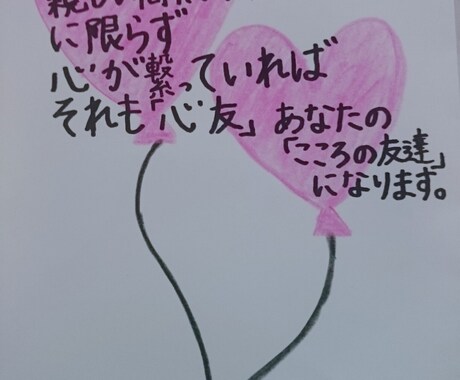 親しい
に限らず
心が繋っていれば
それも「心友」あなたの
「こころの友達」
になります。